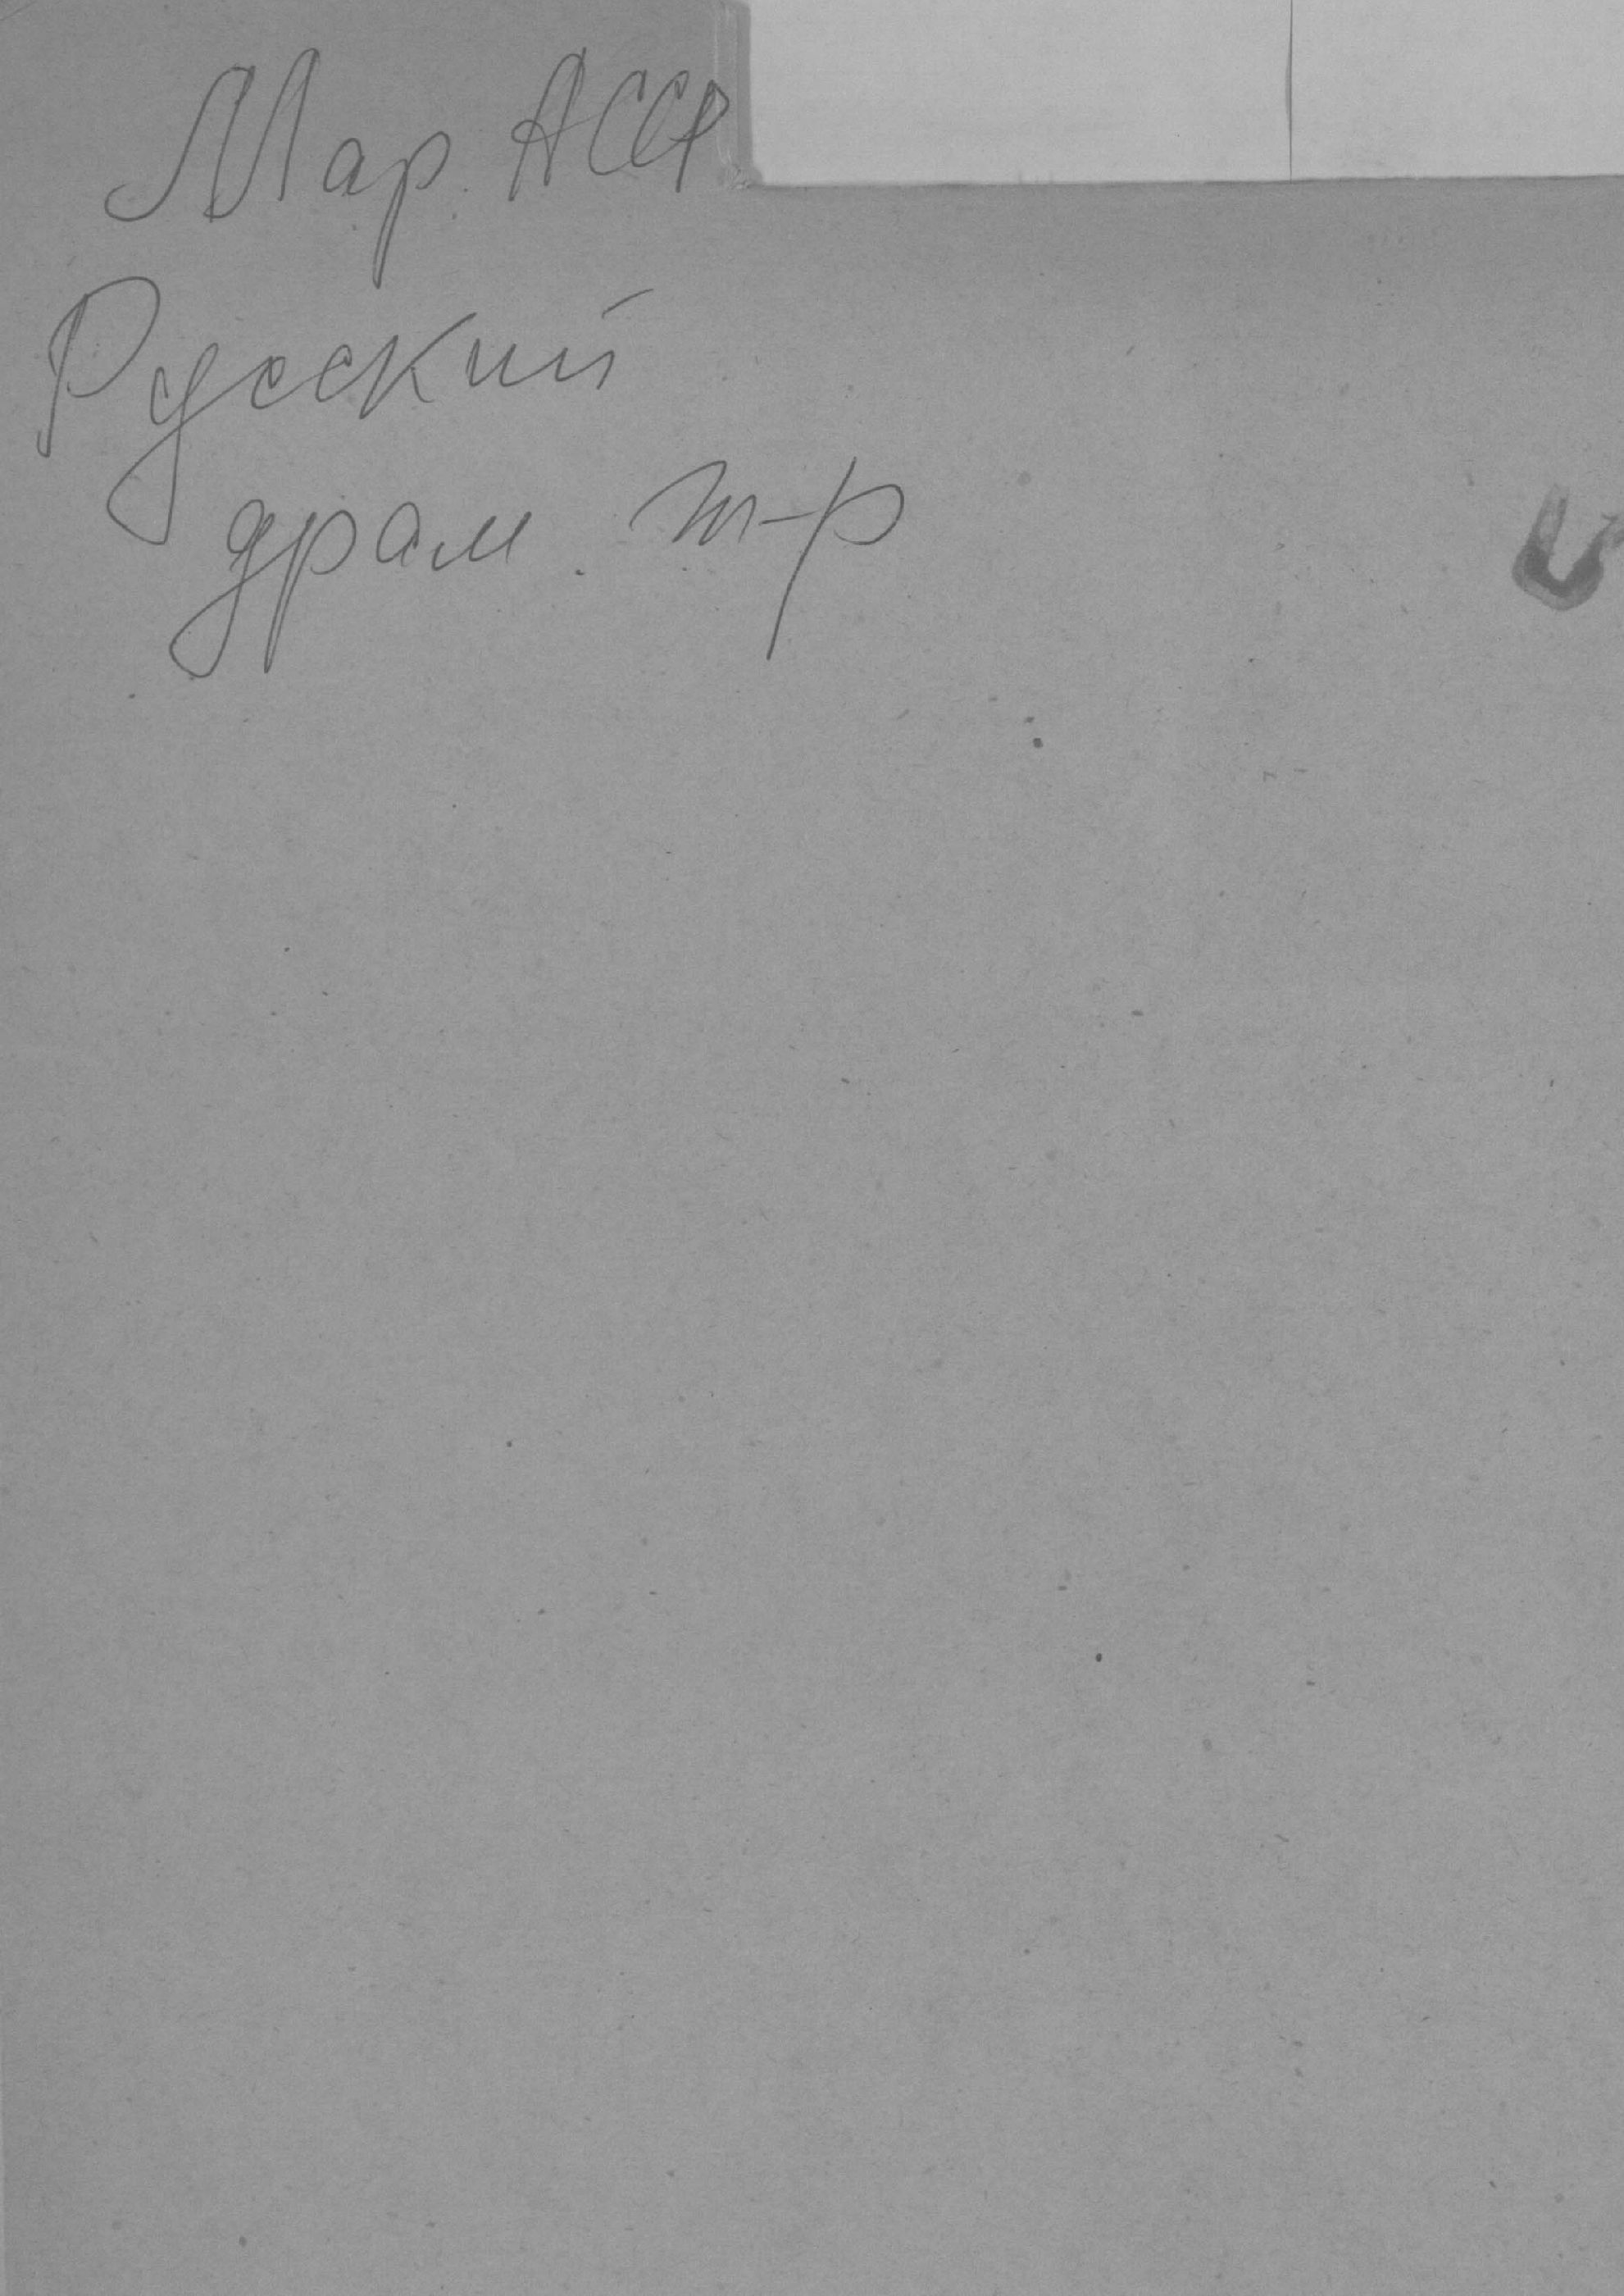 Мар. АССР
Русский
драм. т-р